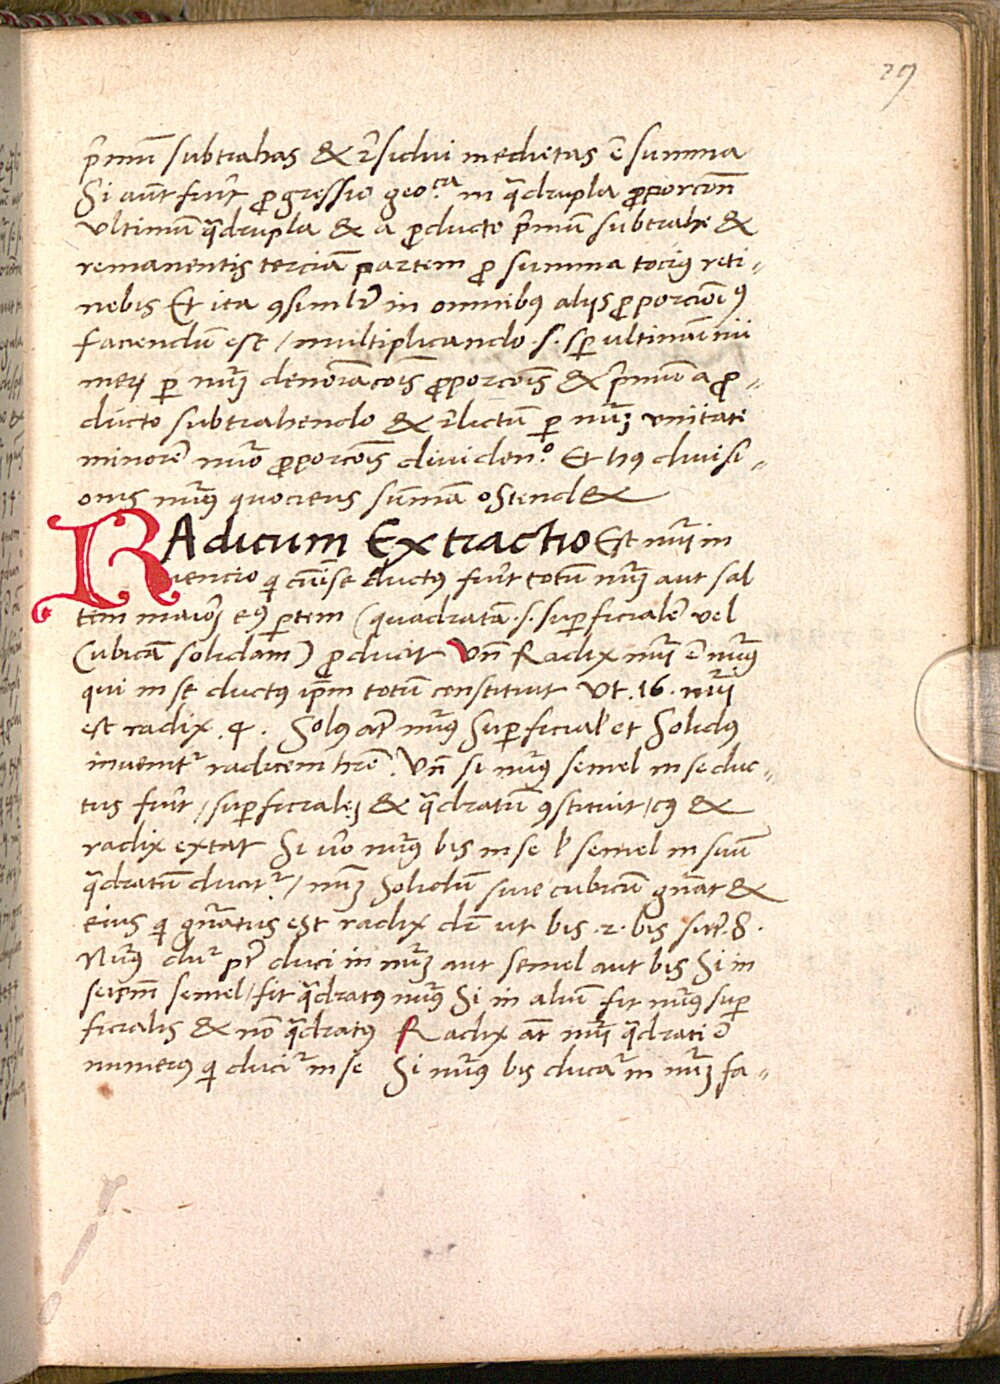 29
p̄mū subtrahas & r̄sidui medietas ē summa
Si aūt fuīt ꝓgressio geo.ca in q̄drupla ꝓporcōn
ultimū q̄drupla & a ꝓducto p̄mū subtrahe &
remanentis terciā partem ꝓ summa tociꝰ reti-
nebis Et ita ꝯsimlr̄ in omnibꝰ alijs ꝓporcōiꝰ
faciendū est / multiplicando .s. sꝑ ultimū nū
meꝝ ꝑ nūꝫ denōiacōis ꝓporcōis & p̄mū a ꝓ-
ducto subtrahendo & r̄lictū ꝑ nūꝫ unitate
minorē nūo ꝓporcōis dividen.º Et hꝰ divisi-
onis nūꝰ quociens sūmā ostendet
RAdicum Extractio Est nūi in
vencio qi cuiꝰ in se ductꝰ fuīt totū nūꝫ aut sal
tem maiorē eꝰ ꝑtem (quadratā .s. suꝑficialē vel
Cubicā solidam) ꝓducit Vn̄ Radix nūi ē nūꝰ
qui in se ductꝰ ip̄m totū constituit Ut .16. nūi
est radix .4. Solꝰ at̄ nūꝰ Suꝑficial' et Solidꝰ
invenitr radicem hr̄e. Vn̄ si nūꝰ semel in se duc-
tus fuīt / suꝑficialeꝫ & q̄dratū ꝯstituit / cꝰ &
radix extat Si v̄o nūꝰ bis in se l' semel in suū
q̄dratū ducitr / nūꝫ Solidū sive cubicū gn̄at &
eius qi gn̄atus est radix dr̄ ut bis .2. bis sūt .8.
Nūꝰ dur pt̄ duci in nūꝫ aut semel aut bis Si in
seip̄m semel / fit q̄dratꝰ nūꝰ Si in aliū fit nūꝰ suꝑ
ficialis & nō q̄dratꝰ Radix at̄ nūi q̄drati ē
numerꝰ qi ducir in se Si nūꝰ bis ducar in nūꝫ fa-